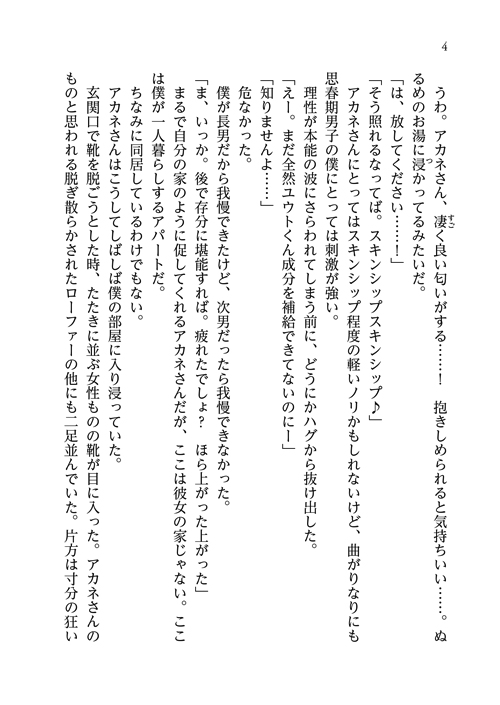 4
うわ。アカネさん、凄く良い匂いがする……！　抱きしめられると気持ちいい……。ぬ
るめのお湯に浸かってるみたいだ。
「は、放してください……！」
「そう照れるなってば。スキンシップスキンシップ♪」
アカネさんにとってはスキンシップ程度の軽いノリかもしれないけど、曲がりなりにも
思春期男子の僕にとっては刺激が強い。
理性が本能の波にさらわれてしまう前に、どうにかハグから抜け出した。
「えー。まだ全然ユウトくん成分を補給できてないのにー」
「知りませんよ……」
危なかった。
僕が長男だから我慢できたけど、次男だったら我慢できなかった。
「ま、いっか。後で存分に堪能すれば。疲れたでしょ？　ほら上がった上がった」
まるで自分の家のように促してくれるアカネさんだが、ここは彼女の家じゃない。ここ
は僕が一人暮らしするアパートだ。
ちなみに同居しているわけでもない。
アカネさんはこうしてしばしば僕の部屋に入り浸っていた。
玄関口で靴を脱ごうとした時、たたきに並ぶ女性ものの靴が目に入った。アカネさんの
ものと思われる脱ぎ散らかされたローファーの他にも二足並んでいた。片方は寸分の狂い